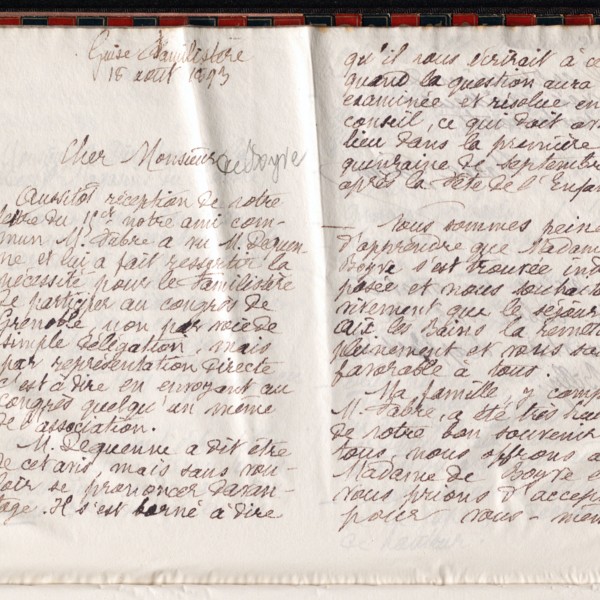 Guise Familistère
15 août 1893
Cher Monsieur de Boyve
Aussitôt réception de votre
lettre du 1er notre ami com-
mun M. Fabre a vu M. Dequen-
ne et lui a fait ressortir la
nécessité pour le Familistère
de participer au congrès de
Grenoble, non par voie de
simple délégation, mais
par représentation directe
c'est à dire en envoyant au
congrès quelqu'un même
de l'association.
M. Dequenne a dit être
de cet avis, mais sans vou-
loir se prononcer davan-
tage. Il s'est borné à dire
qu'il vous écrirait à ce
quand la question aura
examinée et résolue en
conseil, ce qui doit av
lieu dans la première
quinzaine de septembre
après la Fête de l'Enfan
Nous sommes peiné
d'apprendre que Madame
Boyve s'est trouvée ind
posée et nous souhait
vivement que le séjour
aux les bains la remett
pleinement et vous soi
favorable à tous.
Ma famille, y comp
M. Fabre, a été très
de votre bon souvenir
tous, nous offrons a
Madame de Boyve e
vous prions d'accept
pour vous-mêm